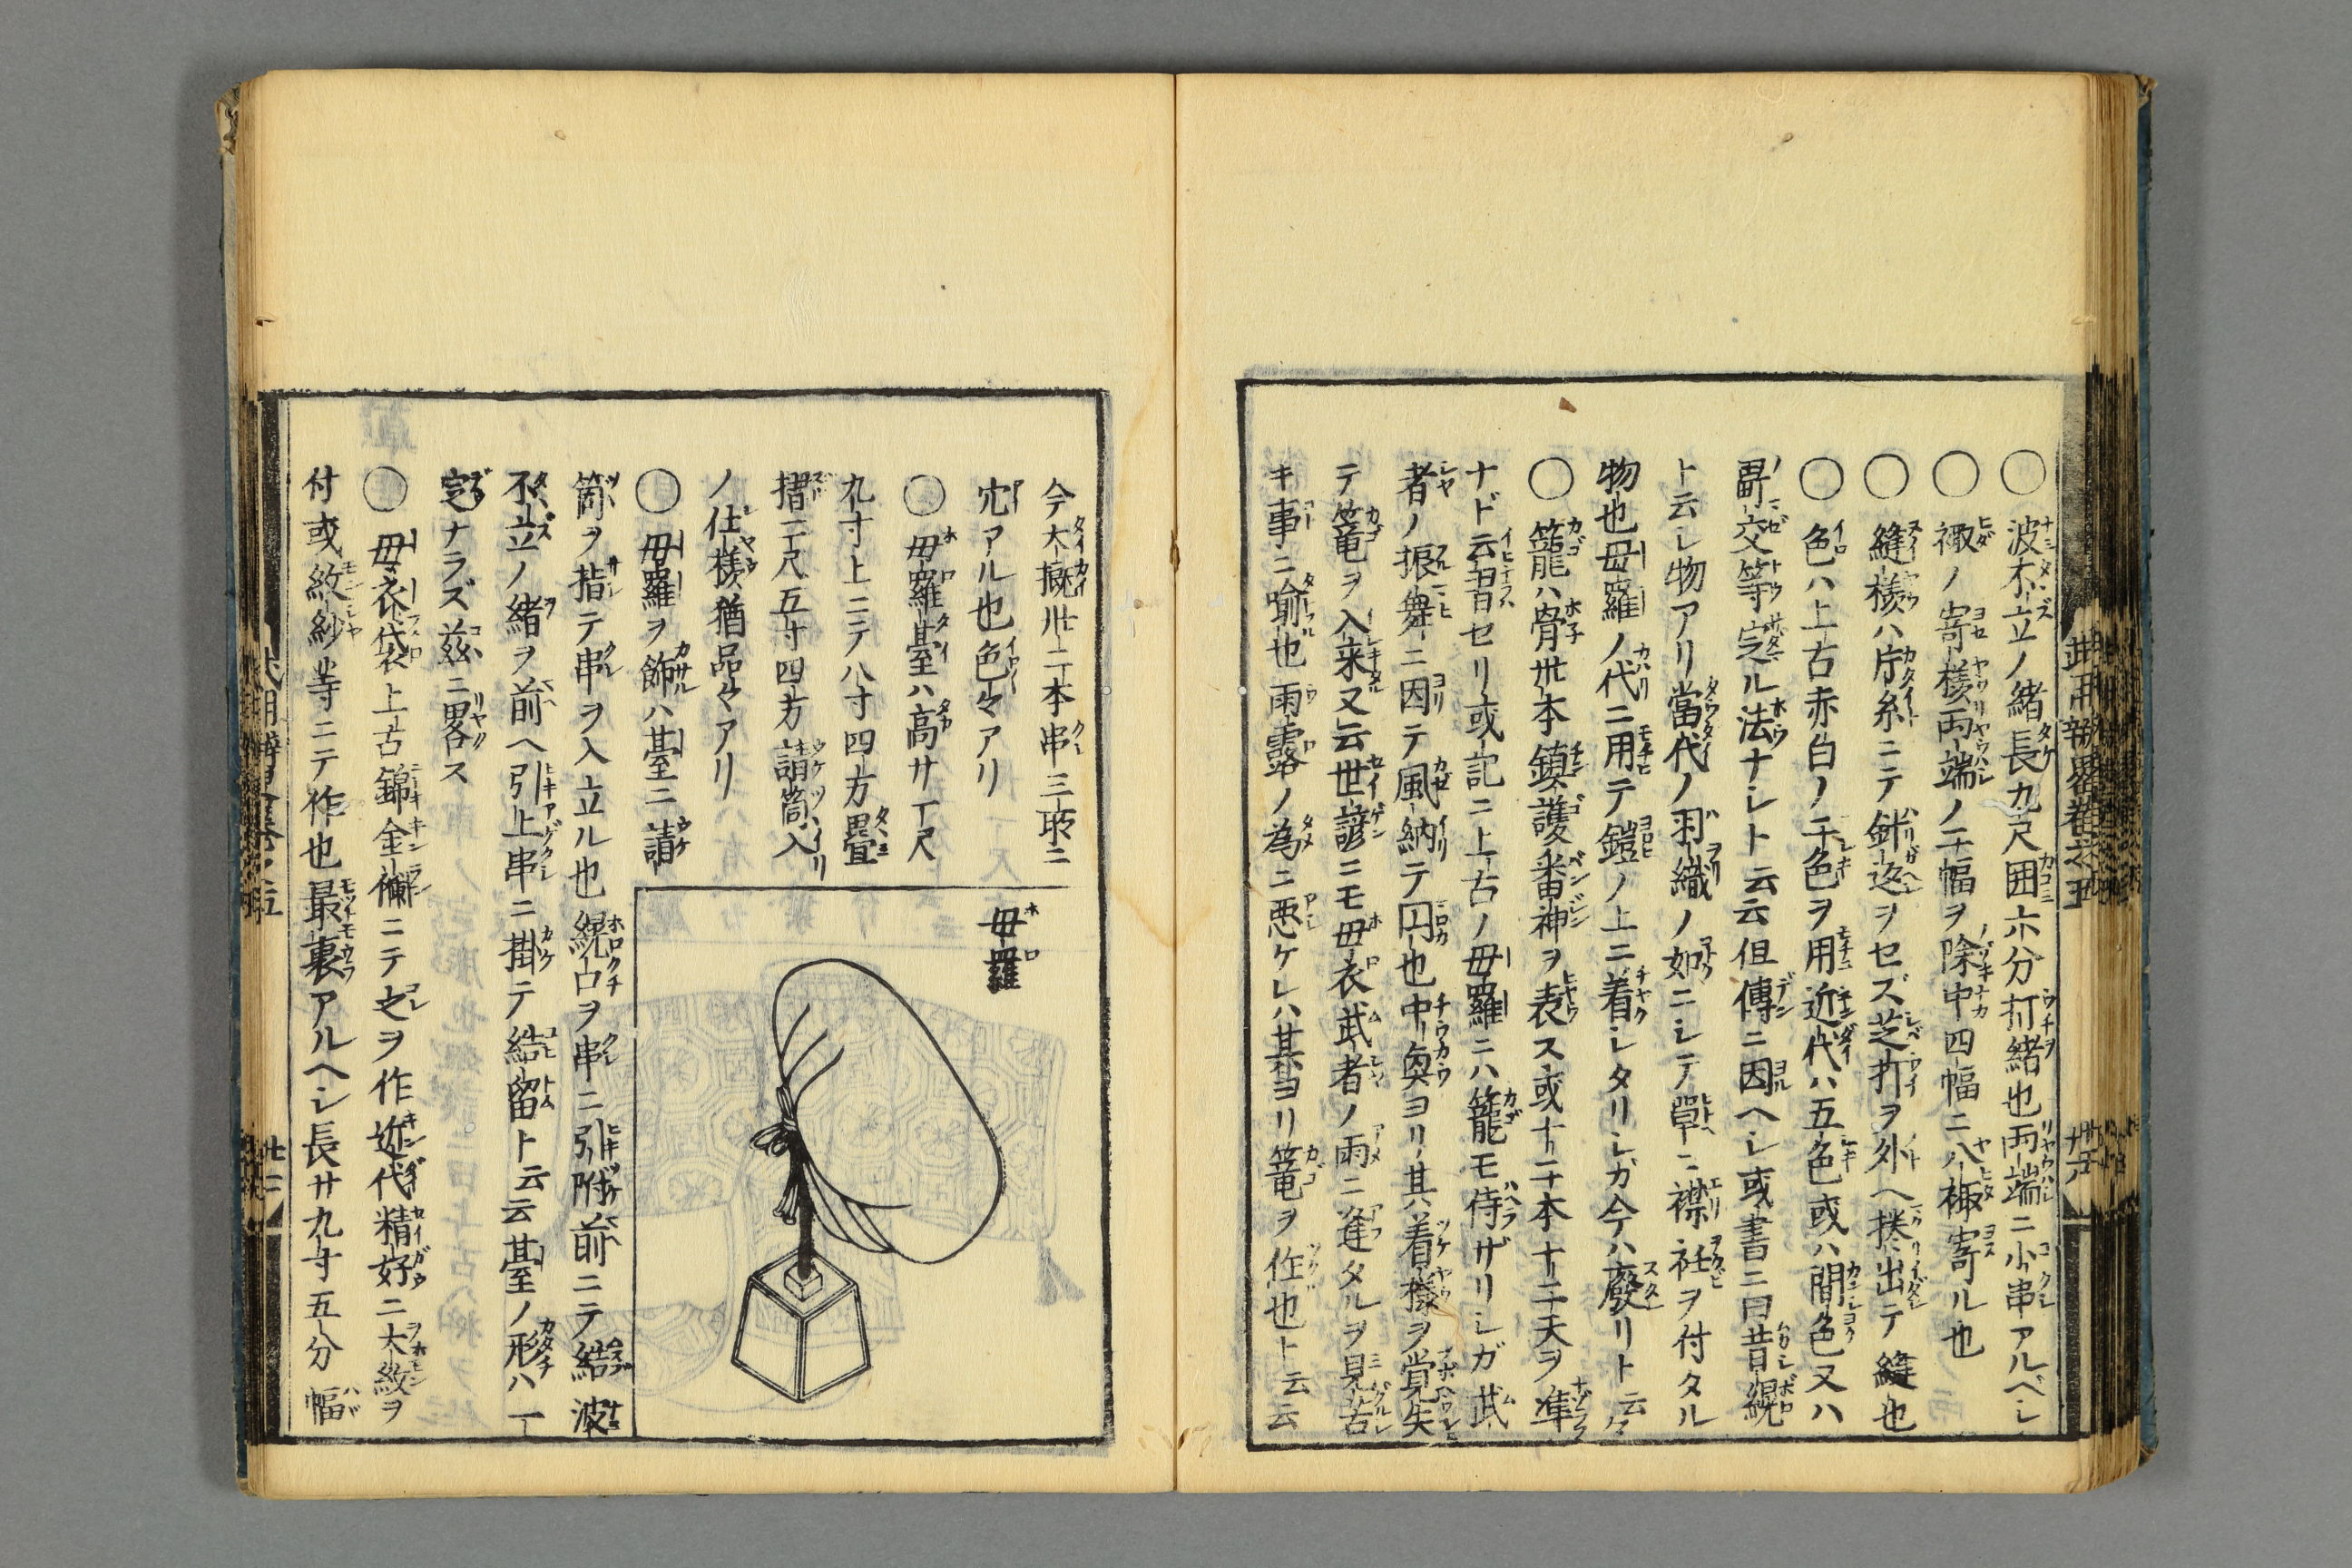 ○波不立ノ緒長九尺囲六分打緒也両端ニ小串アルベシ
○襵ノ寄様両端ノ二幅ヲ除中四幅ニ八襵寄ル也
○縫様ハ片糸ニテ針返ヲセズ芝打ヲ外ヘ捲出テ縫也
○色ハ上古赤白ノ二色ヲ用近代ハ五色或ハ間色又ハ
交等定ル法ナシト云云但傳ニ因ヘシ或書ニ曰昔縨
ト云シ物アリ當代ノ羽織ノ如ニシテ單ニ襟衽ヲ付タル
物也母羅ノ代ニ用テ鎧ノ上ニ着シタリシガ今ハ廢リト云々
○籠ハ骨卅本鎮護番神ヲ表ス或十二本十二天ヲ準
ナド云習セリ或記ニ上古ノ母羅ニハ籠モ侍ザリシガ武
者ノ振舞ニ因テ風納テ円也中奥ヨリ其着様ヲ覚失
テ篭ヲ入来又云世諺ニモ母衣武者ノ雨ニ逢タルヲ見苦
キ事ニ喩也雨露ノ為ニ悪ケレハ其ヨリ篭ヲ作也ト云云
今大概卅二本串三取ニ
穴アル也色々アリ
○母羅臺ハ高サ一尺
九寸上ニテ八寸四方疊
摺二尺五寸四方請筒入
ノ仕様猶品々アリ
○母羅ヲ飾ハ臺ニ請
筒ヲ指テ串ヲ入立ル也縨口ヲ串ニ引附前ニテ結波
不立ノ緒ヲ前ヘ引上串ニ掛テ結留ト云云臺ノ形ハ一
定ナラズ茲ニ畧ス
○母衣袋上古錦金襴ニテ之ヲ作近代精好ニ大紋ヲ
付或紋紗等ニテ作也最裏アルヘシ長サ九寸五分幅
母羅